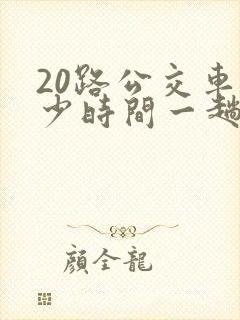 20路公交車
少時間一趟
顔全龍